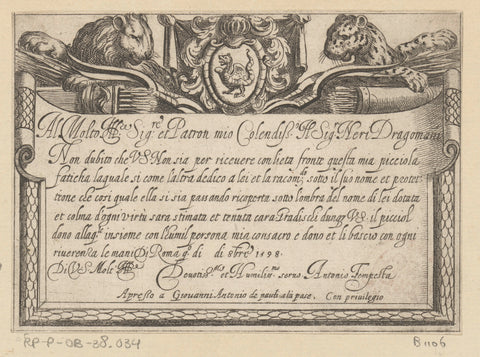 Al Molto Ill.re Sig.re et Patron mio Colendiss.o Il Sig.r Neri Dragomani
Non dubito che V.S. Non sia per riceuere con lieta fronte questa mia picciola
faticha laquale si come l'altra dedico a lei et la racom.do sotto il suo nome et protet-
tione che cosi quale ella si sia passando ricoperta sotto l'ombra del nome di lei dotata
et colma d'ogni virtu sara stimata et tenuta cara Gradischi dunq; V.S. il picciol
dono allaq.l insieme con l'humil persona mia consacro e dono et li bascio con ogni
riuerenza le mani Di Roma q. di di 8bre 1598
Di V.S. Molt. Ill.re
Deuotiss.mo et Humiliss.mo seruo Antonio Tempesta
Apresso a Giouanni Antonio de pauli ala pace. Con priuilegio
RP-P-OB-38.034
B 1106